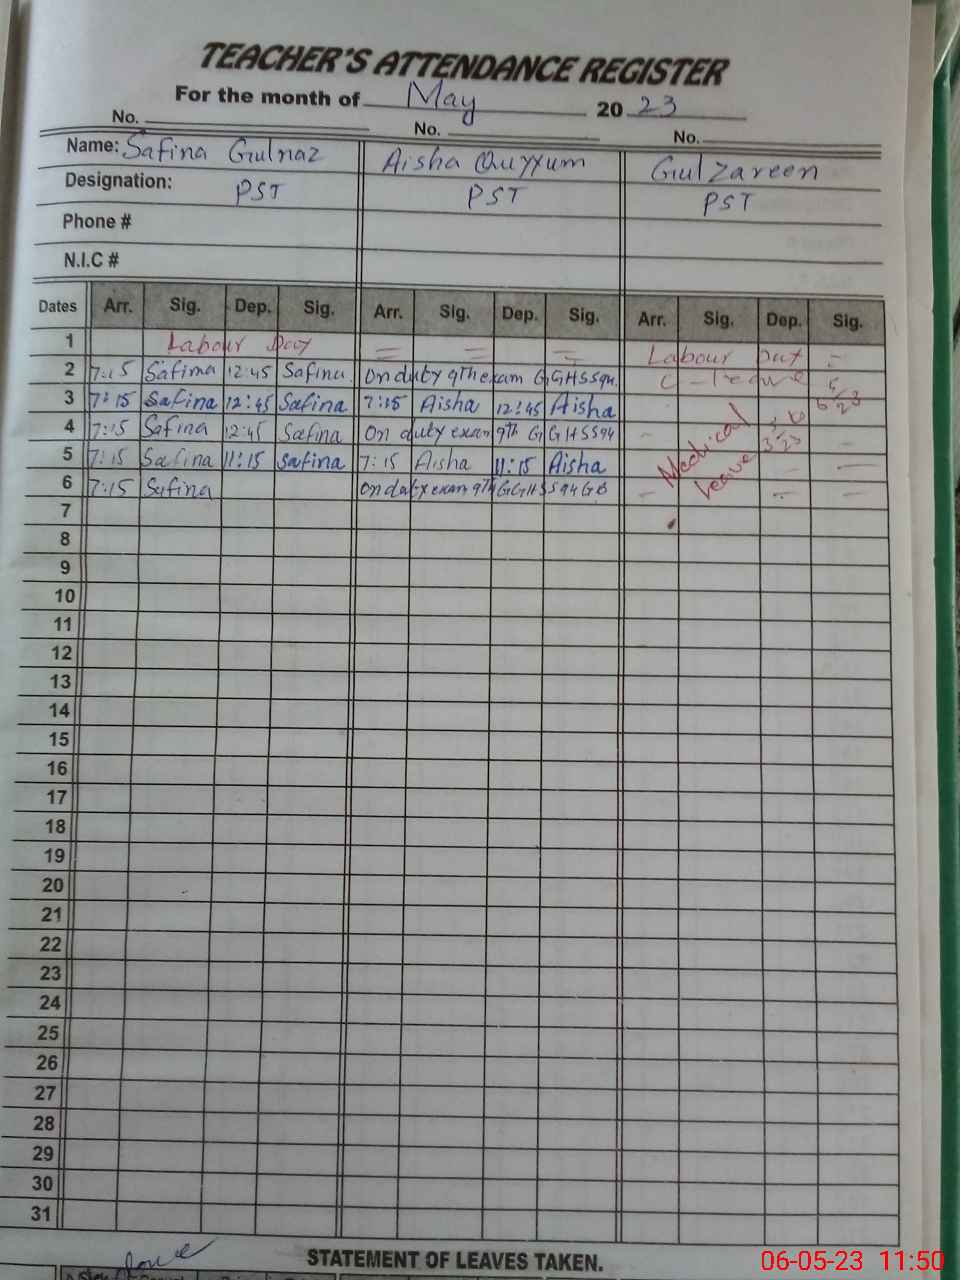 TEACHER'S ATTENDANCE REGISTER
For the month of May 20 23
No. No. No.
Name: Safina Gulnaz Aisha Quyyum Gulzareen
Designation: PST PST PST
Phone #
N.I.C #
Dates Arr. Sig. Dep. Sig. Arr. Sig. Dep. Sig. Arr. Sig. Dep. Sig.
1 Labour Day = = = Labour Day =
2 7:15 Safina 12:45 Safina On duty 9th exam GGHSS94 C-leave
3 7:15 Safina 12:45 Safina 7:15 Aisha 12:45 Aisha
4 7:15 Safina 12:45 Safina On duty exam 9th GGHSS94 Medical
5 7:15 Safina 11:15 Safina 7:15 Aisha 11:15 Aisha leave
6 7:15 Safina On duty exam 9th GGHSS94 GB
7
8
9
10
11
12
13
14
15
16
17
18
19
20
21
22
23
24
25
26
27
28
29
30
31
STATEMENT OF LEAVES TAKEN.
06-05-23 11:50